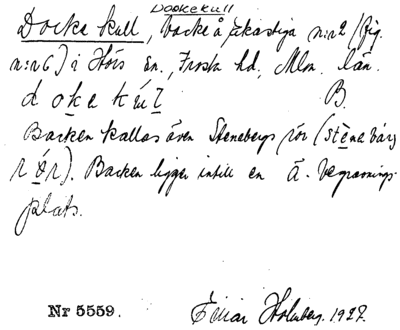 Dockekull
Docke kull, backe å Åkastiga n:r 2 (fig.
n:r 6) i Hörs sn., Frosta hd, Mlm. län.
dokekúl B.
Backen kallas även Stenebergs rör (stenebärj
rör). Backen ligger intill en å. Begravnings-
plats.
Nr 5559. Einar Holmberg. 1927.